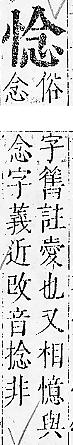 惗
俗
念
字舊註愛也又相憶與
念字義近改音捻非